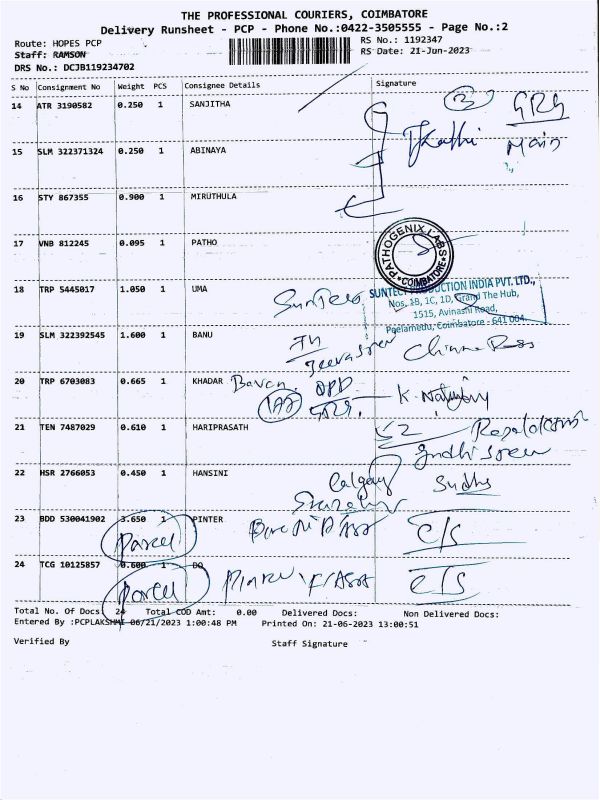 THE PROFESSIONAL COURIERS, COIMBATORE
Delivery Runsheet - PCP - Phone No.:0422-3505555 - Page No.:2
Route: HOPES PCP
RS No.: 1192347
Staff: RAMSON
RS Date: 21-Jun-2023
DRS No.: DCJB119234702
S No Consignment No Weight PCS Consignee Details Signature
14 ATR 3190582 0.250 1 SANJITHA
Main
15 SLM 322371324 0.250 1 ABINAYA
16 STY 867355 0.900 1 MIRUTHULA
17 VNB 812245 0.095 1 PATHO
PATHOGENIX LABS COIMBATORE
18 TRP 5445017 1.050 1 UMA
SUNTECT PRODUCTION INDIA PVT. LTD.,
Nos, 1B, 1C, 1D, Grand The Hub,
1515, Avinashi Road,
Peelamedu, Coimbatore - 641 004.
19 SLM 322392545 1.600 1 BANU
20 TRP 6703083 0.665 1 KHADAR
OPD
21 TEN 7487029 0.610 1 HARIPRASATH
22 HSR 2766053 0.450 1 HANSINI
Calgary
Sudhs
23 BDD 530041902 3.650 1 PINTER
Parcel
C/S
24 TCG 10125857 0.600 1 DO
Parcel
C/S
Total No. Of Docs: 24 Total COD Amt: 0.00 Delivered Docs: Non Delivered Docs:
Entered By :PCPLAKSHMI 06/21/2023 1:00:48 PM Printed On: 21-06-2023 13:00:51
Verified By Staff Signature